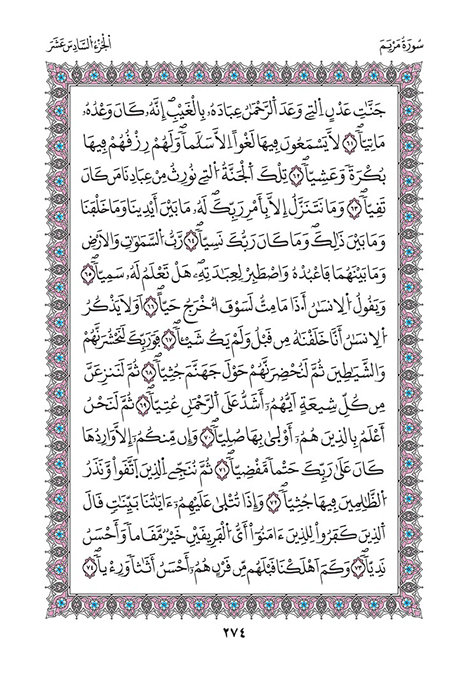 سُورَةُ مَرْيَمَ
الْجُزْءُ السَّادِسَ عَشَرَ
جَنَّٰتِ عَدْنٍ اِ۬لتِے وَعَدَ اَ۬لرَّحْمَٰنُ عِبَادَهُۥ بِالْغَيْبِ إِنَّهُۥ كَانَ وَعْدُهُۥ
مَاتِيّاٗ ٦١ لَّا يَسْمَعُونَ فِيهَا لَغْواً اِلَّا سَلَٰماٗ وَلَهُمْ رِزْقُهُمْ فِيهَا
بُكْرَةٗ وَعَشِيّاٗ ٦٢ تِلْكَ اَ۬لْجَنَّةُ اُ۬لتِے نُورِثُ مِنْ عِبَادِنَا مَن كَانَ
تَقِيّاٗ ٦٣ وَمَا نَتَنَزَّلُ إِلَّا بِأَمْرِ رَبِّكَ لَهُۥ مَا بَيْنَ أَيْدِينَا وَمَا خَلْفَنَا
وَمَا بَيْنَ ذَٰلِكَ وَمَا كَانَ رَبُّكَ نَسِيّاٗ ٦٤ رَّبُّ اُ۬لسَّمَٰوَٰتِ وَالَارْضِ
وَمَا بَيْنَهُمَا فَاعْبُدْهُ وَاصْطَبِرْ لِعِبَٰدَتِهِۦ هَلْ تَعْلَمُ لَهُۥ سَمِيّاٗ ٦٥
وَيَقُولُ اُ۬لِانسَٰنُ أَ.ذَا مَا مِتُّ لَسَوْفَ أُخْرَجُ حَيّاً ٦٦ اَوَلَا يَذْكُرُ
اُ۬لِانسَٰنُ أَنَّا خَلَقْنَٰهُ مِن قَبْلُ وَلَمْ يَكُ شَيْـٔاٗ ٦٧ فَوَرَبِّكَ لَنَحْشُرَنَّهُمْ
وَالشَّيَٰطِينَ ثُمَّ لَنُحْضِرَنَّهُمْ حَوْلَ جَهَنَّمَ جُثِيّاٗ ٦٨ ثُمَّ لَنَنزِعَنَّ
مِن كُلِّ شِيعَةٍ اَيُّهُمُۥٓ أَشَدُّ عَلَى اَ۬لرَّحْمَٰنِ عُتِيّاٗ ٦٩ ثُمَّ لَنَحْنُ
أَعْلَمُ بِالذِينَ هُمُۥٓ أَوْلَىٰ بِهَا صُلِيّاٗ ٧٠ وَإِن مِّنكُمُۥٓ إِلَّا وَارِدُهَا
كَانَ عَلَىٰ رَبِّكَ حَتْماٗ مَّقْضِيّاٗ ٧١ ثُمَّ نُنَجِّے اِ۬لذِينَ اَ۪تَّقَواْ وَّنَذَرُ
اُ۬لظَّٰلِمِينَ فِيهَا جُثِيّاٗ ٧٢ وَإِذَا تُتْلَىٰ عَلَيْهِمُۥٓ ءَايَٰتُنَا بَيِّنَٰتٖ قَالَ
اَ۬لذِينَ كَفَرُواْ لِلذِينَ ءَامَنُوٓاْ أَيُّ اُ۬لْفَرِيقَيْنِ خَيْرٞ مَّقَاماٗ وَأَحْسَنُ
نَدِيّاٗ ٧٣ وَكَمَ اَهْلَكْنَا قَبْلَهُم مِّن قَرْنٍ هُمُۥٓ أَحْسَنُ أَثَٰثاٗ وَرِءْياٗ ٧٤
٢٧٤